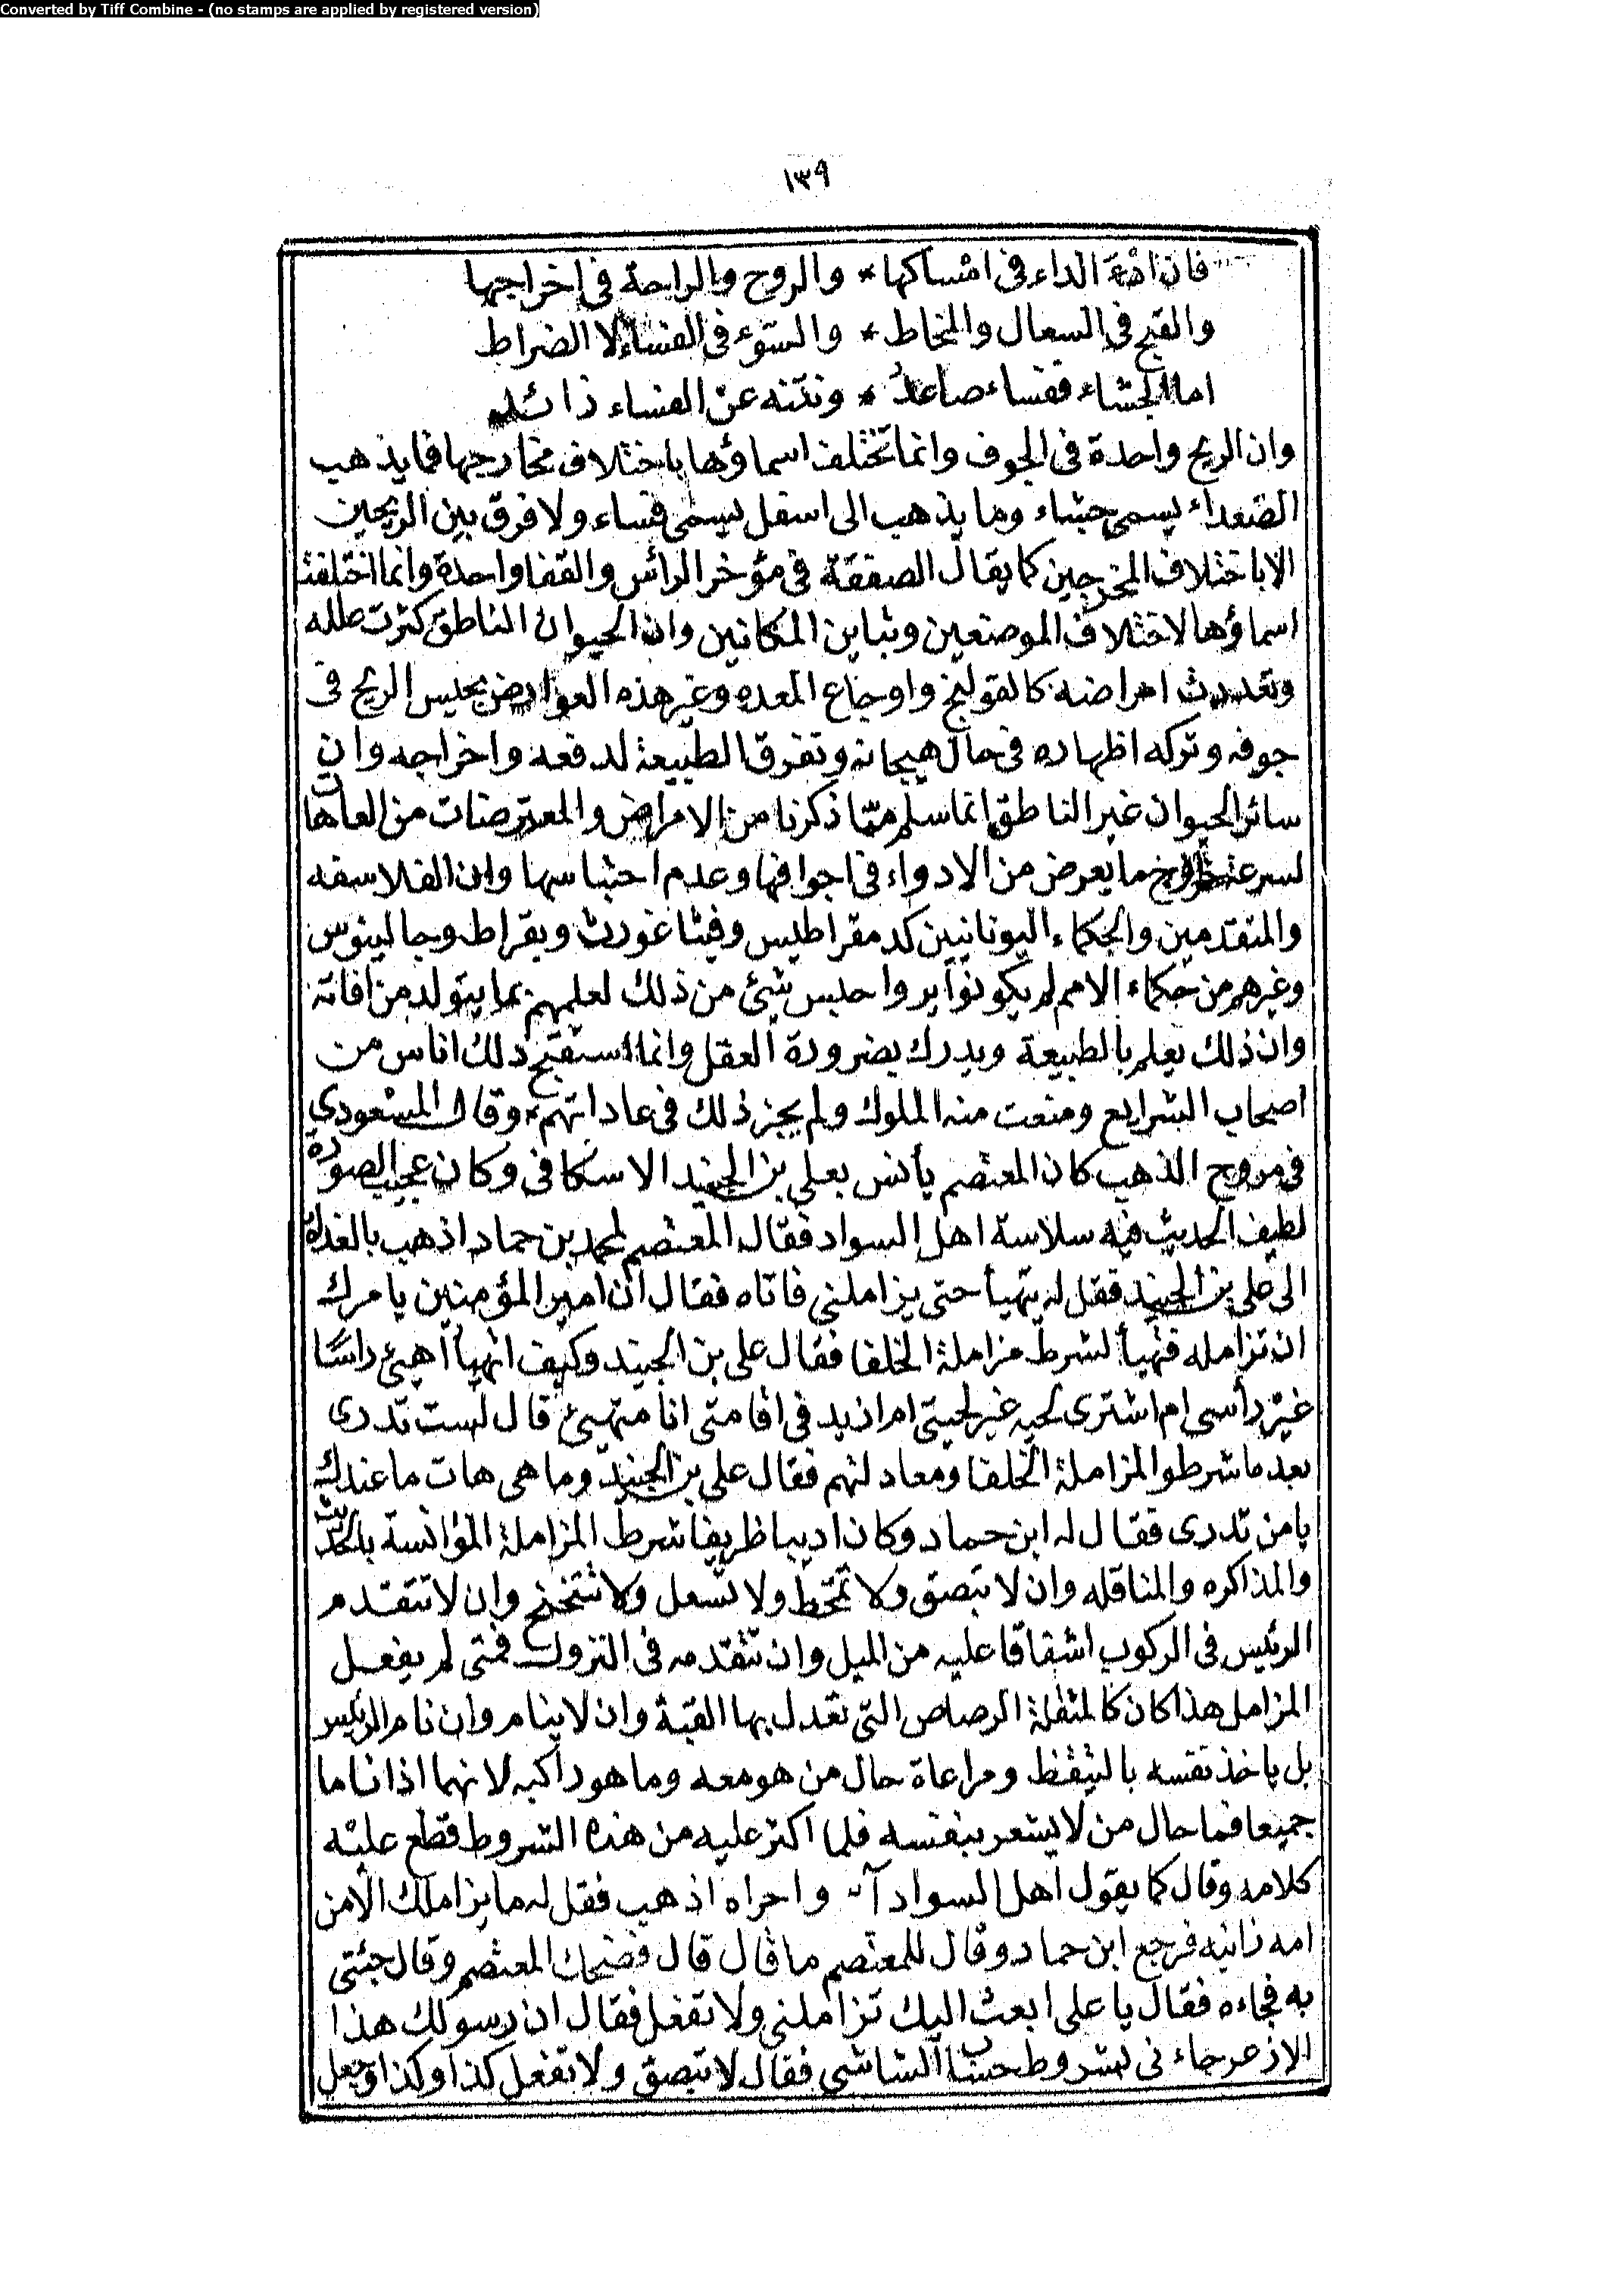 Converted by Tiff Combine - (no stamps are applied by registered version)
١٣٩
فان الداء فى امساكها * والروح والراحة فى اخراجها
والقبح فى السعال والمخاط * والسوء فى الفساء لا الضراط
اما الجشاء ففساء صاعد * ونتنه عن الفساء زائد
وان الريح واحدة فى الجوف وانما تختلف اسماؤها باختلاف مخارجها فما يذهب
الصعداء يسمى جشاء وما يذهب الى اسفل يسمى فساء ولا فرق بين الريحين
الا باختلاف المخرجين كما يقال الصفقة فى مؤخر الرأس والقفا واحدة وانما اختلفت
اسماؤها لاختلاف الموضعين وتباين المكانين وان الحيوان الناطق كثرت علله
وتعددت امراضه كالقولنج واوجاع المعده وغير هذه العوارض بحبس الريح فى
جوفه وتركه اظهاره فى حال هيجانه وتفرق الطبيعة لدفعه واخراجه وان
سائر الحيوان غير الناطق انما سلم مما ذكرنا من الامراض والمعترضات من العاهات
لسرعة خروج ما يعرض من الادواء فى اجوافها وعدم احتباسها وان الفلاسفه
والمتقدمين والحكماء اليونانيين كدمقراطيس وفيثاغورث وبقراط وجالينوس
وغيرهم من حكماء الامم لم يكونوا يروا حبس شئ من ذلك لعلمهم بما يتولد من افاته
وان ذلك يعلم بالطبيعة ويدرك بضرورة العقل وانما استقبح ذلك اناس من
اصحاب الشرايع ومنعت منه الملوك ولم يجز ذلك فى عاداتهم * وقال المسعودي
فى مروج الذهب كان المعتصم يأنس بعلي بن الجنيد الاسكافى وكان عجيب الصورة
لطيف الحديث فيه سلاسة اهل السواد فقال المعتصم لمحمد بن حماد اذهب بالغداة
الى على بن الجنيد فقل له يتهيأ حتى يزاملني فاتاه فقال ان امير المؤمنين يامرك
ان تزامله فتهيأ لشرط مزاملة الخلفا فقال على بن الجنيد وكيف اتهيأ أهيئ راسًا
غير رأسى ام اشترى لحيه غير لحيتى ام ازيد فى قامتى انا متهيئ قال لست تدرى
بعد ما شرطوا لمزاملة الخلفا ومعادلتهم فقال على بن الجنيد وما هى هات ما عندك
يا من تدرى فقال له ابن حماد وكان اديبا ظريفا شرط المزاملة المؤانسة بالحديث
والمذاكره والمناقله وان لا تبصق ولا تمخط ولا تسعل ولا تتنخنح وان لا تتقدم
الرئيس فى الركوب اشفاقا عليه من الميل وان تتقدمه فى النزول فمتى لم يفعل
المزامل هذا كان كالمثقلة الرصاص التى تعدل بها القبة وان لا ينام وان نام الرئيس
بل ياخذ نفسه بالتيقظ ومراعاة حال من هو معه وما هو راكبه لانهما اذا ناما
جميعا فما حال من لا يشعر بنفسه فلما اكثر عليه من هذه الشروط قطع عليه
كلامه وقال كما يقول اهل السواد آه واحراه اذهب فقل له ما يزاملك الا من
امه زانيه فرجع ابن حماد وقال للمعتصم ما قال قال فضحك المعتصم وقال جئنى
به فجاءه فقال يا على ابعث اليك تزاملنى ولا تفعل فقال ان رسولك هذا
جاء نى بشروط الشاشى فقال لا تبصق ولا تفعل كذا وكذا وجعل